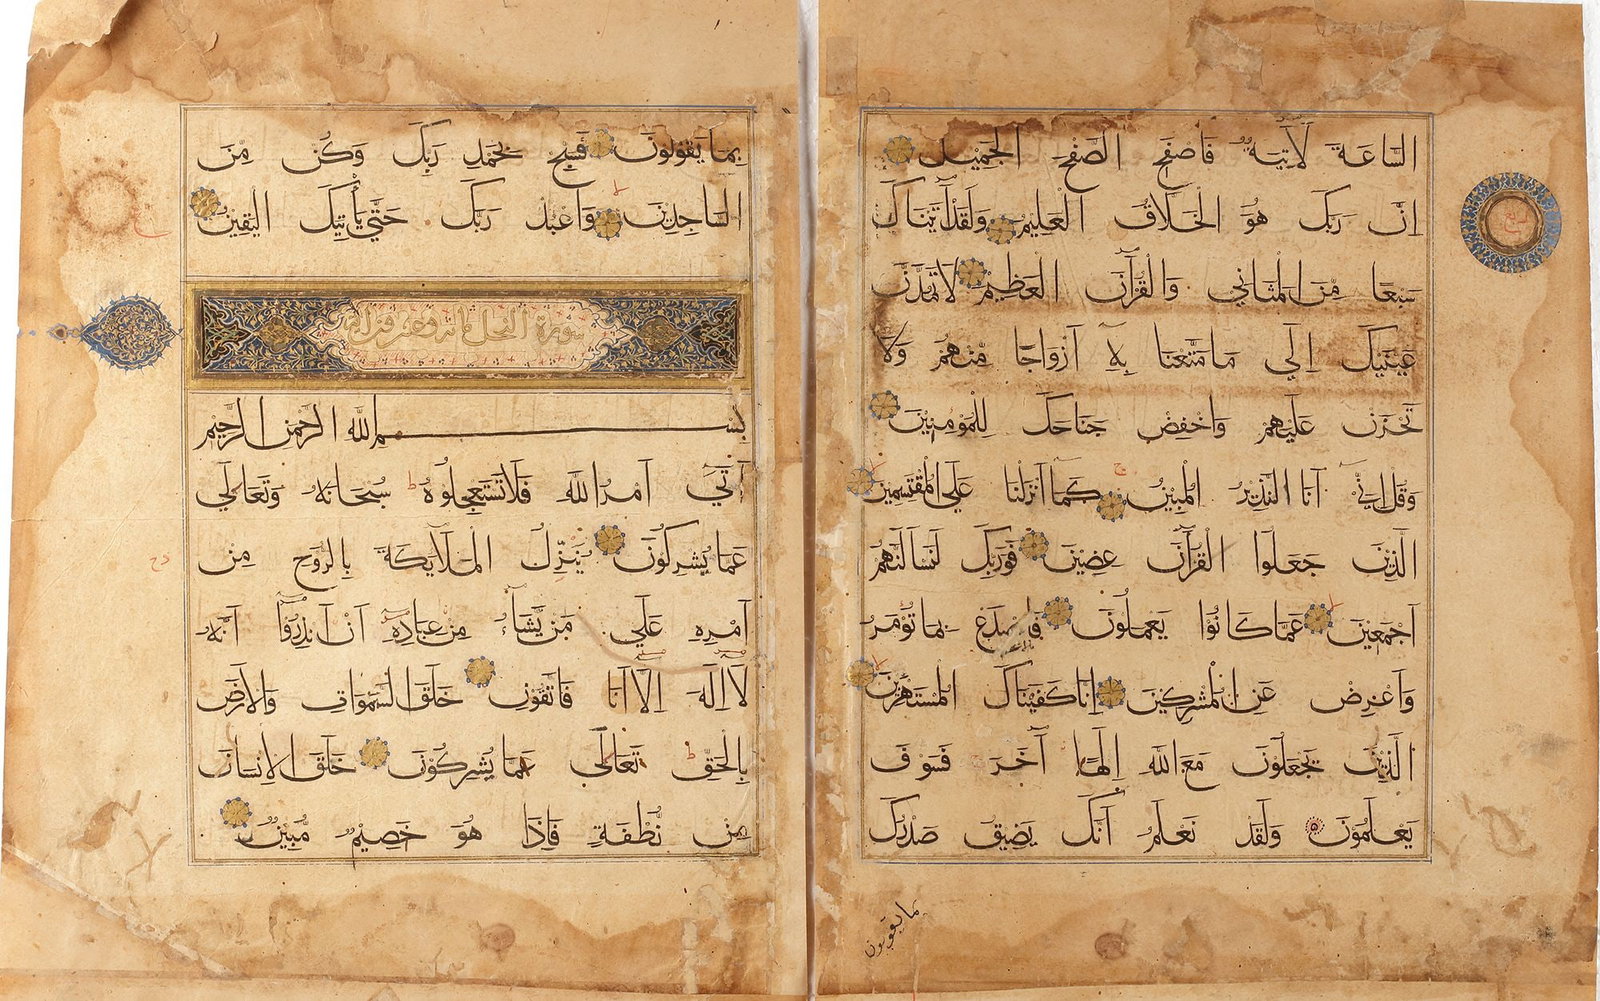 الساعة لآتية فاصفح الصفح الجميل
ان ربك هو الخلاق العليم ولقد آتيناك
سبعا من المثاني والقرآن العظيم لا تمدن
عينيك الي ما متعنا به ازواجا منهم ولا
تحزن عليهم واخفض جناحك للمؤمنين
وقل اني انا النذير المبين كما انزلنا علي المقتسمين
الذين جعلوا القرآن عضين فوربك لنسألنهم
اجمعين عما كانوا يعملون فاصدع بما تؤمر
واعرض عن المشركين انا كفيناك المستهزئين
الذين يجعلون مع الله الها آخر فسوف
يعلمون ولقد نعلم انك يضيق صدرك
بما يقولون
بما يقولون فسبح بحمد ربك وكن من
الساجدين واعبد ربك حتي يأتيك اليقين
سورة النحل مائة وعشرون
بسم الله الرحمن الرحيم
آتي امر الله فلا تستعجلوه سبحانه وتعالي
عما يشركون ينزل الملايكة بالروح من
امره علي من يشاء من عباده ان انذروا انه
لا اله الا انا فاتقون خلق السموات والارض
بالحق تعالي عما يشركون خلق الانسان
من نطفة فاذا هو خصيم مبين